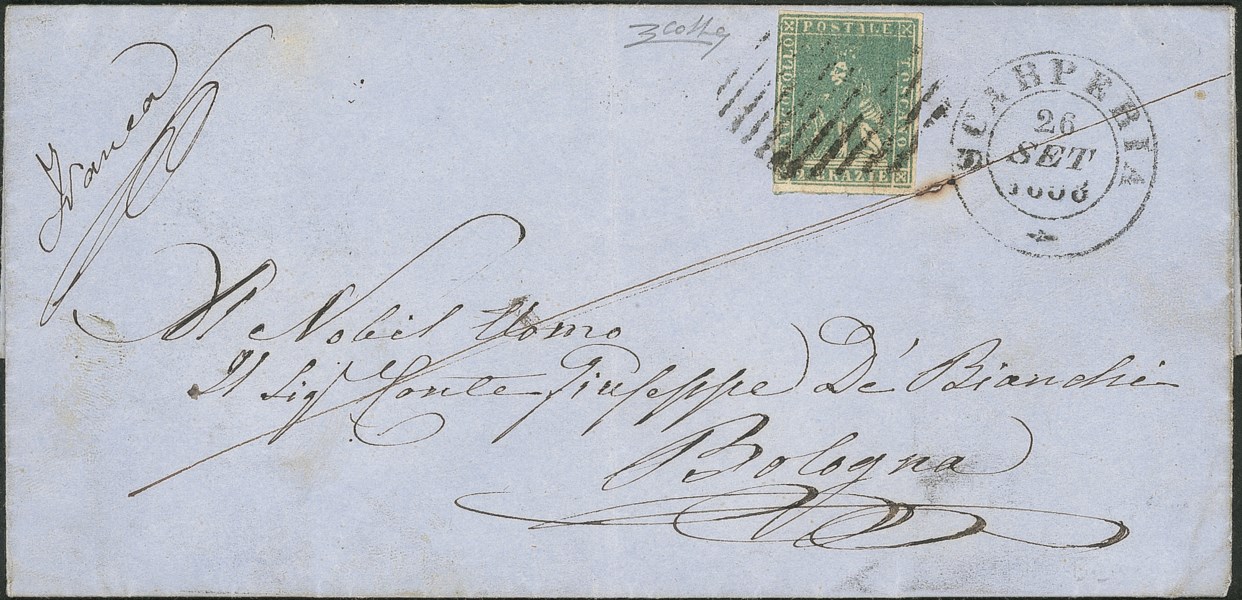 3 cotta
POSTALE
FRANCOBOLLO
TOSCANO
GRAZIE
SCARPERIA
26
SET
Franca
Al Nobil Uomo
Il Sigr Conte Giuseppe De' Bianchi
Bologna